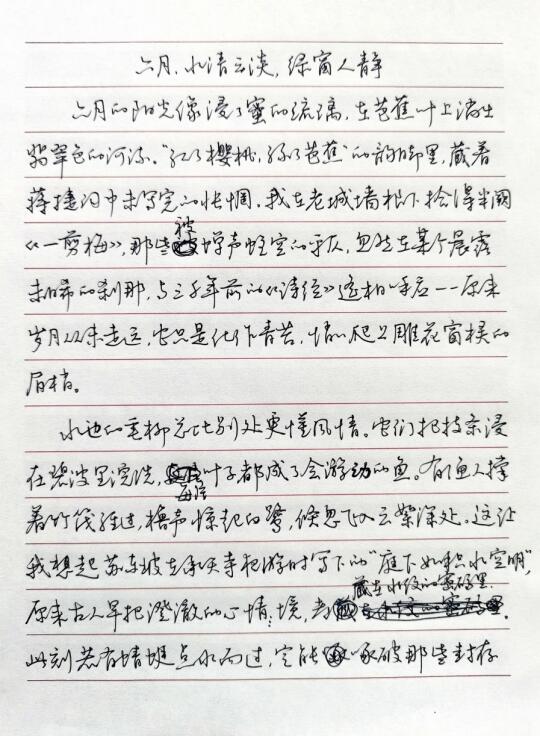 六月,水清云淡,绿窗人静
六月的阳光像浸了蜜的琉璃,在芭蕉叶上淌出
翡翠色的河流。“红了樱桃,绿了芭蕉”的韵脚里,藏着
蒋捷词中未写完的怅惘。我在老城墙根下拾得半阕
《一剪梅》,那些被蝉声蛀空的平仄,忽然在某个晨露
未晞的刹那,与三千年前的《诗经》遥相呼应——原来
岁月从未走远,它只是化作青苔,悄悄爬上雕花窗棂的
眉梢。
水边的垂柳总比别处更懂风情。它们把枝条浸
在碧波里浣洗,每片叶子都成了会游动的鱼。有渔人撑
着竹筏经过,橹声惊起白鹭,倏忽飞入云絮深处。这让
我想起苏东坡在承天寺夜游时写下的“庭下如积水空明”,
藏在水纹的密码里
原来古人早把澄澈的心情、境,都
此刻若有蜻蜓点水而过,定能啄破那些封存